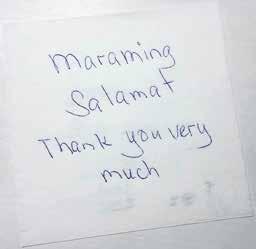 Maraming
Salamat
Thank you very
much